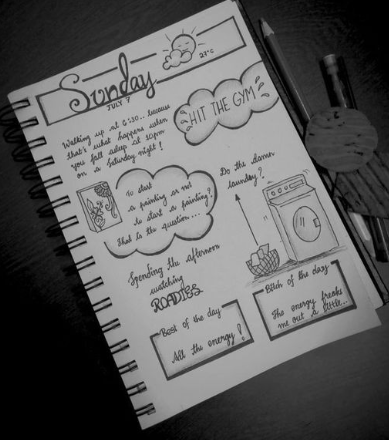 Sunday
JULY 7
27°C
Walking up at 6:30... because
that's what happens when
you fall asleep at 10pm
on a Saturday night!
HIT THE GYM
To start
a painting or not
to start a painting?
that is the question...
Do the damn
laundry?
Spending the afternoon
watching
ROADIES
Best of the day
All the energy!
Bitch of the day
The energy freaks
me out a little...